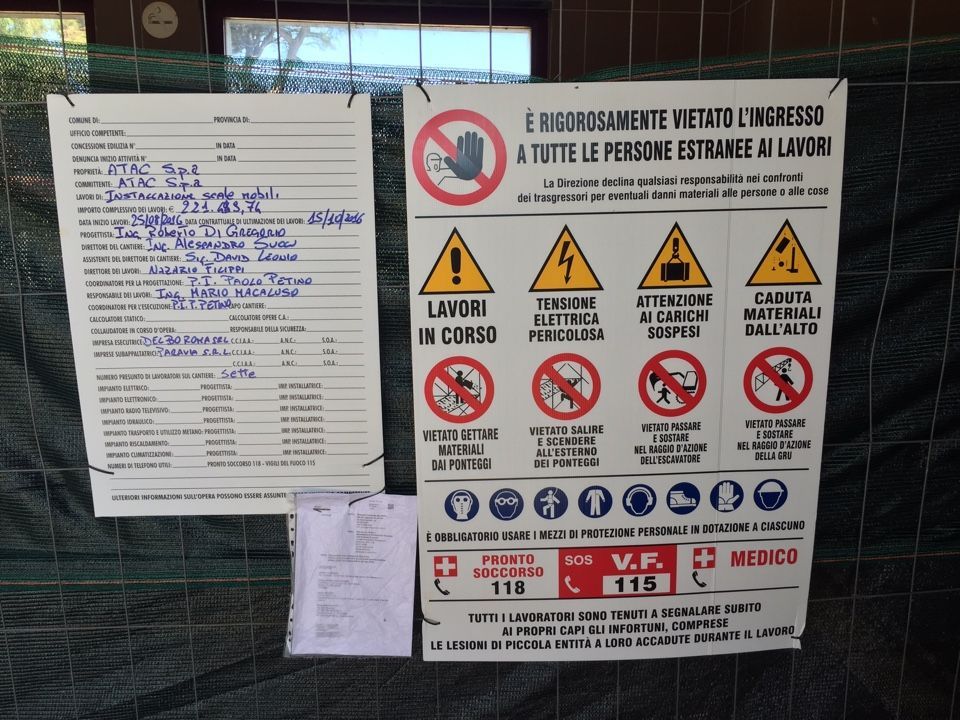 COMUNE DI: PROVINCIA DI:
UFFICIO COMPETENTE:
CONCESSIONE EDILIZIA N° IN DATA
DENUNCIA INIZIO ATTIVITÀ N° IN DATA
PROPRIETÀ: ATAC S.p.a
COMMITTENTE: ATAC S.p.a
LAVORI DI: INSTALLAZIONE SCALE MOBILI
IMPORTO COMPLESSIVO DEI LAVORI: € 221.483,74
DATA INIZIO LAVORI: 25/08/2016 DATA CONTRATTUALE DI ULTIMAZIONE DEI LAVORI: 15/10/2016
PROGETTISTA: ING. ROBERTO DI GREGORIO
DIRETTORE DEL CANTIERE: ING. ALESSANDRO
ASSISTENTE DEL DIRETTORE DI CANTIERE: SIG. DAVID LEONIO
DIRETTORE DEI LAVORI: NAZARIO FILIPPI
COORDINATORE PER LA PROGETTAZIONE: P.I. PAOLO PETINO
RESPONSABILE DEI LAVORI: ING. MARIO MACALUSO
COORDINATORE PER L'ESECUZIONE: P.I. P. PETINO CAPO CANTIERE:
CALCOLATORE STATICO: CALCOLATORE OPERE C.A.:
COLLAUDATORE IN CORSO D'OPERA: RESPONSABILE DELLA SICUREZZA:
IMPRESA ESECUTRICE: DEL BO ROMA SRL C.C.I.A.A.: A.N.C.: S.O.A.:
IMPRESE SUBAPPALTATRICI: PARAVIA S.R.L. C.C.I.A.A.: A.N.C.: S.O.A.:
C.C.I.A.A.: A.N.C.: S.O.A.:
NUMERO PRESUNTO DI LAVORATORI SUL CANTIERE: SETTE
IMPIANTO ELETTRICO: PROGETTISTA: IMP. INSTALLATRICE:
IMPIANTO ELETTRONICO: PROGETTISTA: IMP. INSTALLATRICE:
IMPIANTO RADIO TELEVISIVO: PROGETTISTA: IMP. INSTALLATRICE:
IMPIANTO IDRAULICO: PROGETTISTA: IMP. INSTALLATRICE:
IMPIANTO TRASPORTO E UTILIZZO METANO: PROGETTISTA: IMP. INSTALLATRICE:
IMPIANTO RISCALDAMENTO: PROGETTISTA: IMP. INSTALLATRICE:
IMPIANTO CLIMATIZZAZIONE: PROGETTISTA: IMP. INSTALLATRICE:
NUMERI DI TELEFONO UTILI: PRONTO SOCCORSO 118 - VIGILI DEL FUOCO 115
ULTERIORI INFORMAZIONI SULL'OPERA POSSONO ESSERE ASSUNTE
È RIGOROSAMENTE VIETATO L'INGRESSO
A TUTTE LE PERSONE ESTRANEE AI LAVORI
La Direzione declina qualsiasi responsabilità nei confronti
dei trasgressori per eventuali danni materiali alle persone o alle cose
LAVORI
IN CORSO
TENSIONE
ELETTRICA
PERICOLOSA
ATTENZIONE
AI CARICHI
SOSPESI
CADUTA
MATERIALI
DALL'ALTO
VIETATO GETTARE
MATERIALI
DAI PONTEGGI
VIETATO SALIRE
E SCENDERE
ALL'ESTERNO
DEI PONTEGGI
VIETATO PASSARE
E SOSTARE
NEL RAGGIO D'AZIONE
DELL'ESCAVATORE
VIETATO PASSARE
E SOSTARE
NEL RAGGIO D'AZIONE
DELLA GRU
È OBBLIGATORIO USARE I MEZZI DI PROTEZIONE PERSONALE IN DOTAZIONE A CIASCUNO
PRONTO
SOCCORSO
118
SOS V.F.
115
MEDICO
TUTTI I LAVORATORI SONO TENUTI A SEGNALARE SUBITO
AI PROPRI CAPI GLI INFORTUNI, COMPRESE
LE LESIONI DI PICCOLA ENTITÀ A LORO ACCADUTE DURANTE IL LAVORO